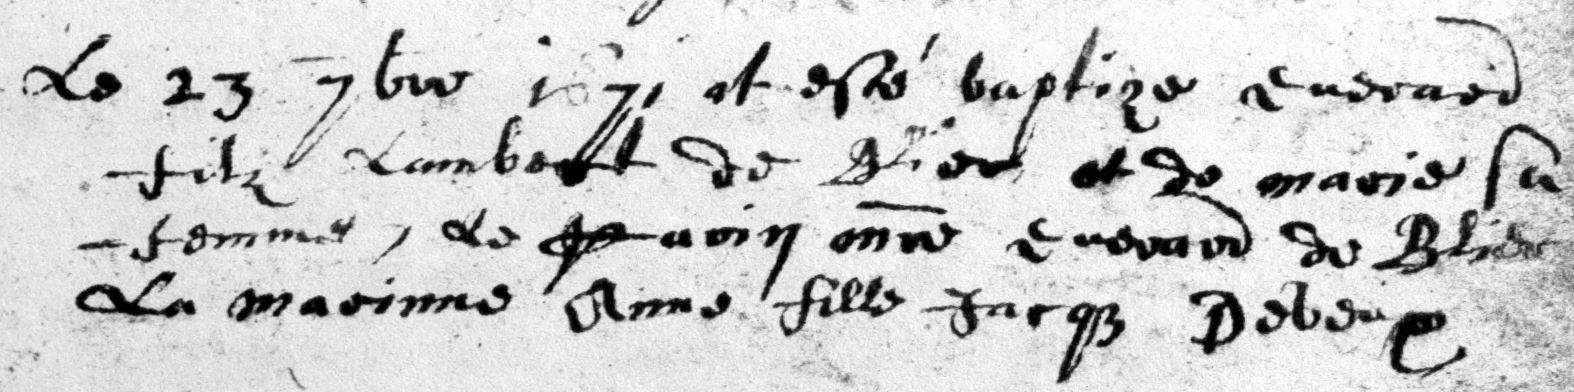 Le 23 7bre 1671 at esté baptize Everard
filz Lambert de Blier et de marie sa
femme, Le parin mre Everard de Blier
La marinne Anne fille Jacq